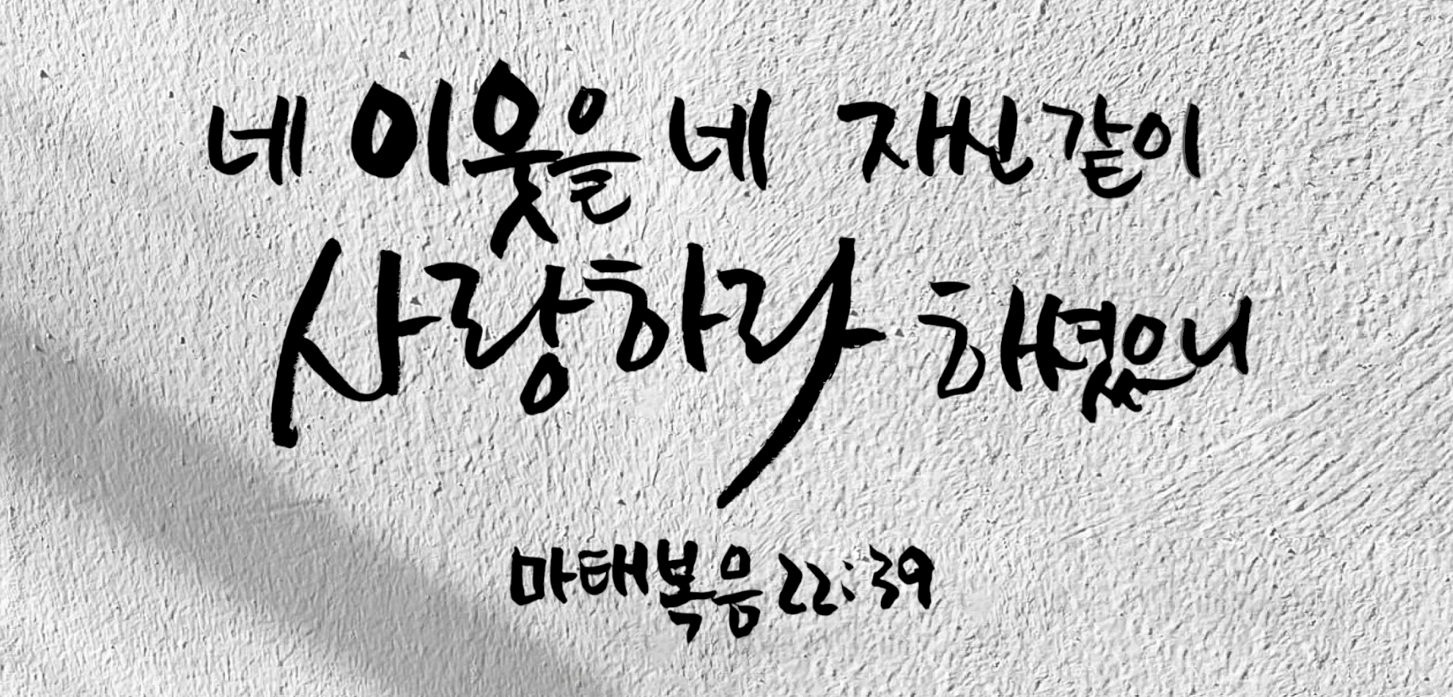 네 이웃을 네 자신같이
사랑하라 하셨으니
마태복음 22:39